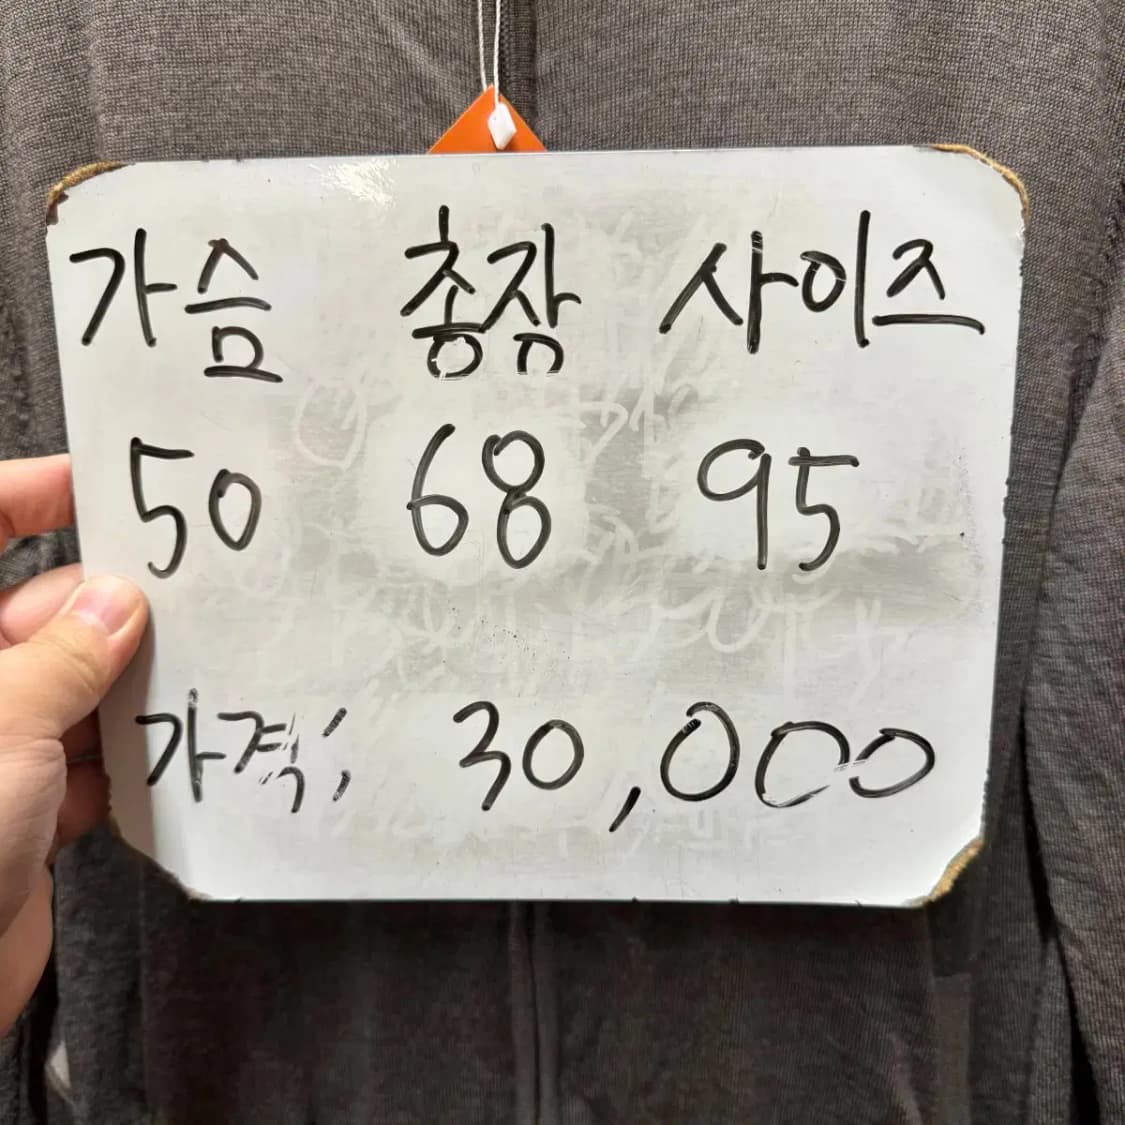 가슴 총장 사이즈
50 68 95
가격; 30,000